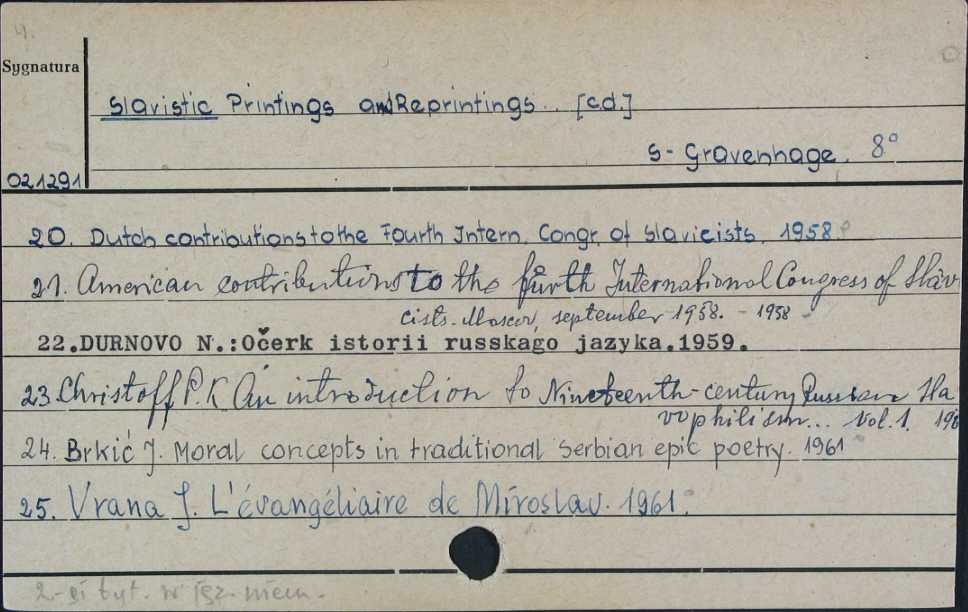 4.
Sygnatura
Slavistic Printings and Reprintings... [cd.]
S-Gravenhage. 8°
021291
20. Dutch contributions to the Fourth Intern. Congr. of Slavicists. 1958.
21. American contributions to the fourth International Congress of Slavi
cists. Moscow, september 1958. - 1958
22.DURNOVO N.:Očerk istorii russkago jazyka.1959.
23. Christoff P.K An introduction to Nineteenth-century Russian Sla
vophilism... Vol.1. 196
24. Brkić J. Moral concepts in traditional Serbian epic poetry. 1961
25. Vrana J. L'évangéliaire de Miroslav. 1961.
2-gi tyt. w jęz. niem.